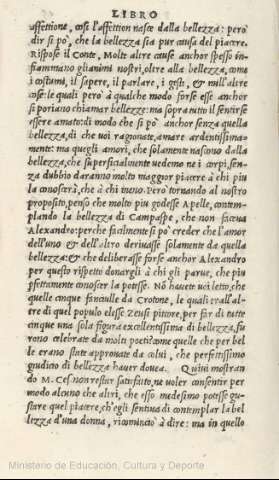 LIBRO
affettione, cosi l'affettion nasce dalla bellezza: però
dir si pò, che la bellezza sia pur causa del piacere.
Rispose il Conte, Molte altre cause anchor spesso in-
fiammano gli animi nostri, oltre alla bellezza, come
i costumi, il sapere, il parlare, i gesti, & mill'altre
cose: le quali però à qualche modo forse esse anchor
si poriano chiamar bellezze: ma sopra tutto il sentirsi
essere amato: di modo che si pò anchor senza quella
bellezza, di che voi ragionate, amare ardentissima-
mente: ma quegli amori, che solamente nascono dalla
bellezza, che superficialmente uedemo ne i corpi, sen-
za dubbio daranno molto maggior piacere à chi piu
la conoscerà, che à chi meno. Però tornando al nostro
proposito, penso che molto piu godesse Apelle, contem-
plando la bellezza di Campaspe, che non faceua
Alexandro: perche facilmente si pò creder che l'amor
dell'uno & dell'altro deriuasse solamente da quella
bellezza: & che deliberasse forse anchor Alexandro
per questo rispetto donargli à chi gli parue, che piu
pfettamente conoscer la potesse. Nõ hauete uoi letto, che
quelle cinque fanciulle da Crotone, le quali trall'al-
tre di quel populo elesse Zeusi pittore, per far di tutte
cinque una sola figura excellentissima di bellezza, fu-
rono celebrate da molti poeti: come quelle che per bel
le erano state approuate da colui, che perfettissimo
giudicio di bellezza hauer douea. Quiui mostran
do M. Cesar non restar satisfatto, ne uoler consentir per
modo alcuno che altri, che esso medesimo potesse gu-
stare quel piacere, ch'egli sentiua di contemplar la bel
lezza d'una donna, ricominciò à dire: ma in quello
Ministerio de Educación, Cultura y Deporte